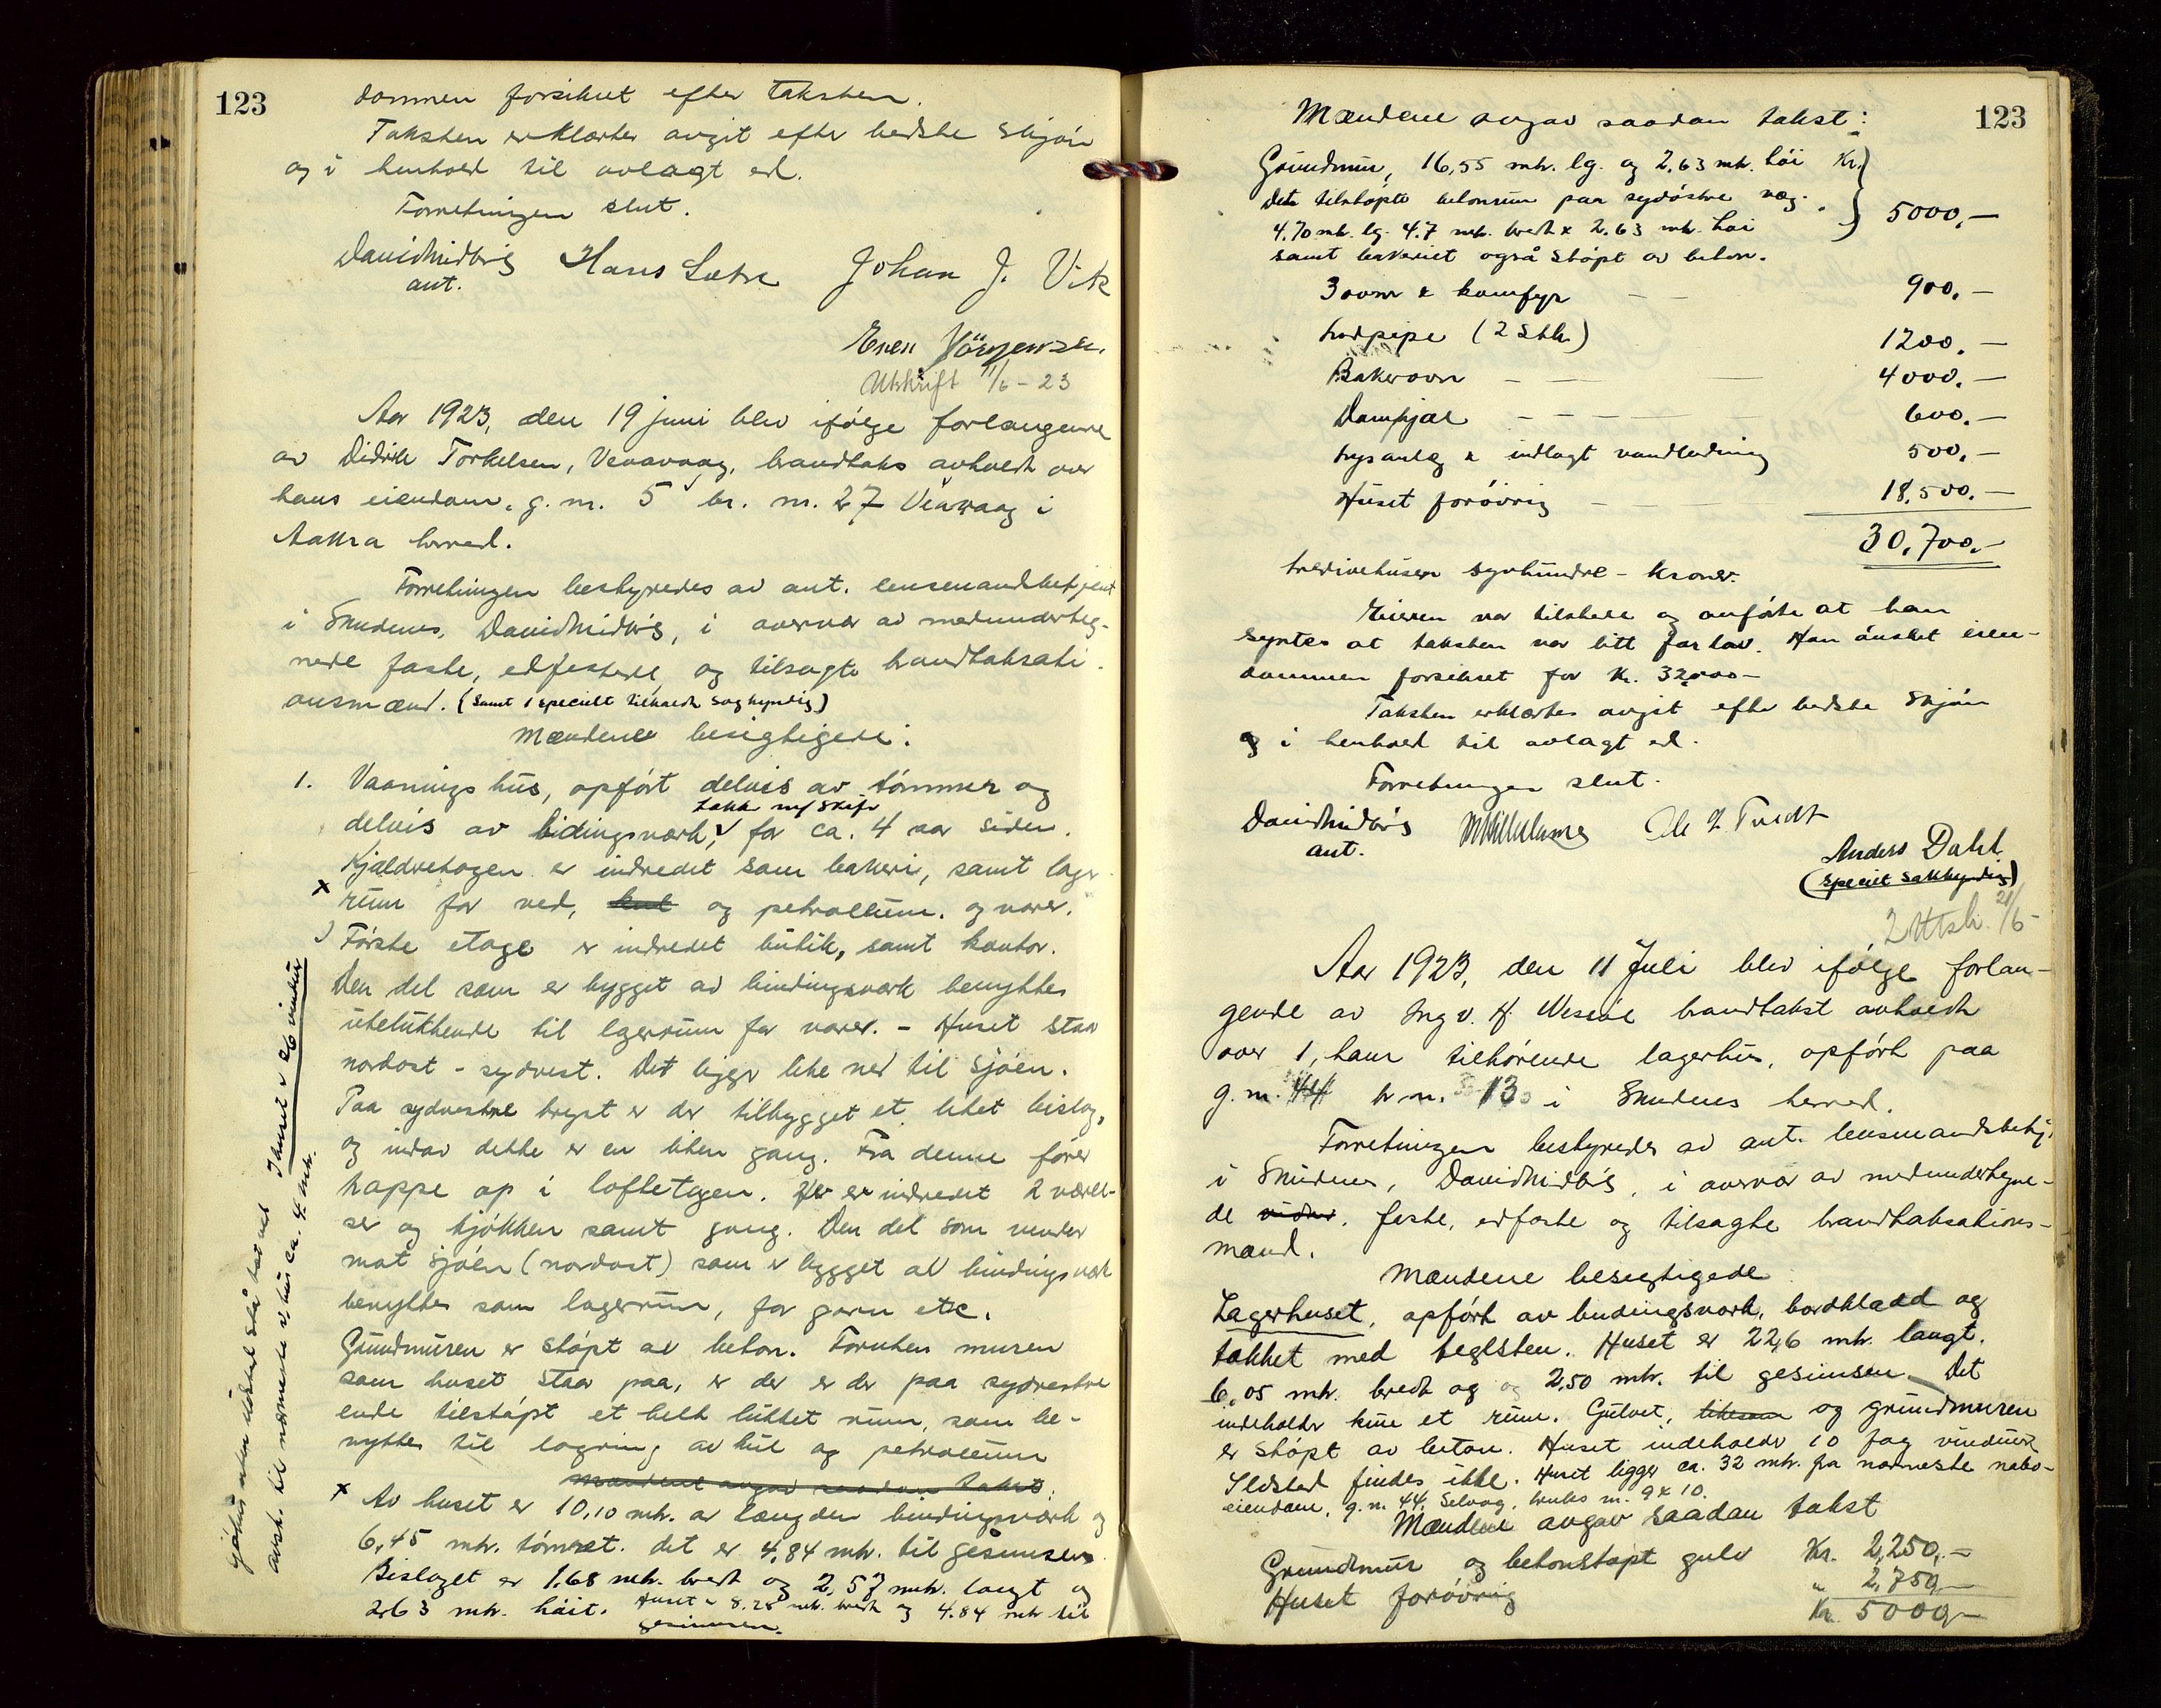 123
dommen forsikret efter taksten.
Taksten erklærtes avgit efter bedste skjøn
og i henhold til avlagt ed.
Forretningen slut.
David Midbøs Hans Sætre Johan J. Vik
ant.
Enen Jörgensen.
Utskrift 11/6 - 23
Aar 1923, den 19 juni blev ifølge forlangende
av Didrik Torkelsen, Veavaag, brandtakst avholdt over
hans eiendom, g. nr. 5 br. nr. 27 Veavaag i
Aakra herred.
Forretningen bestyredes av ant. lensmandbetjent
i Skudenes, David Midbøs, i overvær av medunderteg-
nede faste, edfestede og tilsagte brandtaksati-
onsmænd. (Samt 1 specielt tilkaldt sagkyndig)
Mændene besigtigede:
1. Vaaningshus, opført delvis av tømmer og
takk m/ skifer
delvis av bidingsverk, for ca. 4 aar siden.
Kjælderetagen er indredet som bakeri, samt lager
x rum for ved, kul og petroleum. og varer.
Første etage er indredet butik, samt kontor.
Den del som er bygget av bindingsværk benyttes
utelukkende til lagerrum for varer. - Huset staar
nordost - sydvest. Det ligger like ned til sjøen.
Paa sydvestre bryst er der tilbygget et litet bislag,
og indav dette er en liten gang. Fra denne fører
trappe op i loftetagen. Her er indredet 2 værel-
ser og kjøkken samt gang. Den del som vender
mot sjøen (nordost) som er bygget av bindingsverk
benyttes som lagerrum, for garn etc.
Grundmuren er støpt av beton. Foruten muren
som huset staar paa, er der er der paa sydvestre
ende tilstøpt et helt lukket rum, som be-
nyttes til lagring av kul og petroleum
Mændene avgav saadan takst:
x Av huset er 10,10 mtr. av længden bindingsverk og
6,45 mtr. tømret. det er 4,84 mtr. til gesimsen
Bislaget er 1.68 mtr. bredt og 2,57 mtr. langt og
2,63 mtr. høit. Huset er 8.28 mtr. bredt og 4.84 mtr til
gesimsen.
I huset er 26 vinduer
avst. til nærmeste v. hus ca. 4 mtr.
123
Mændene avgav saadan takst:
Grundmur, 16,55 mtr. lg. og 2,63 mtr. høi Kr.
Det tilstøpte betonrum paa sydøstre væg. 5000,-
4.70 mtr. lg. 4.7 mtr. bredt x 2.63 mtr. høi
samt bakeriet også støpt av beton.
3 ovner & komfyr - - 900,-
Luftpipe (2 Stk.) 1200,-
Bakerovn - - - 4000,-
Dampkjel - - - - - 600,-
Lysanlæg & indlagt vandledning 500,-
Huset forøvrig - - 18,500,-
30,700,-
tredivetusen syvhundre - kroner.
Eieren var tilstede og anførte at han
syntes at taksten var litt for lav. Han ønsket eien-
dommen forsikret for kr. 32,000-
Taksten erklærtes avgit efter bedste skjøn
og i henhold til avlagt ed.
Forretningen slut.
David Midbøs
ant.
Anders Dahl
(Specielt sakkyndig)
2 Utsk. 21/6-
Aar 1923, den 11 Juli blev ifølge forlan-
gende av Ingv. H. Wessøe brandtakst avholdt
over 1, ham tilhørende lagerhus, opført paa
g. nr. 44 br nr. 13 i Skudenes herred.
Forretningen bestyredes av ant. lensmandsbetj.
i Skudenes, David Midbøs, i overvær av medundertegne-
de vidner, faste, edfæste og tilsagte brandtaksations-
mænd.
Mændene besigtigede
Lagerhuset, opført av bindingsverk, bordklædd og
takket med teglsten. Huset er 22,6 mtr. langt.
6,05 mtr. bredt og og 2,50 mtr. til gesimsen. Det
indeholder kun et rum. Gulvet, likesom og grundmuren
er støpt av beton. Huset indeholder 10 fag vinduer
Ildsted findes ikke. Huset ligger ca. 32 mtr. fra nærmeste nabo-
eiendom, g. nr. 44, Selvog, bruks nr. 9 x 10.
Mændene avgav saadan takst
Grundmur og betonstøpt gulv Kr. 2,250,-
Huset forøvrig " 2,750,-
Kr. 5000,-